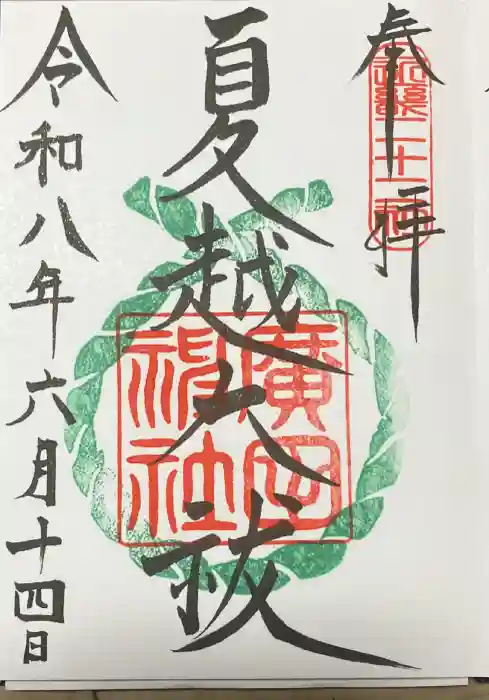 奉拝
夏越大祓
廣田神社
令和八年六月十四日